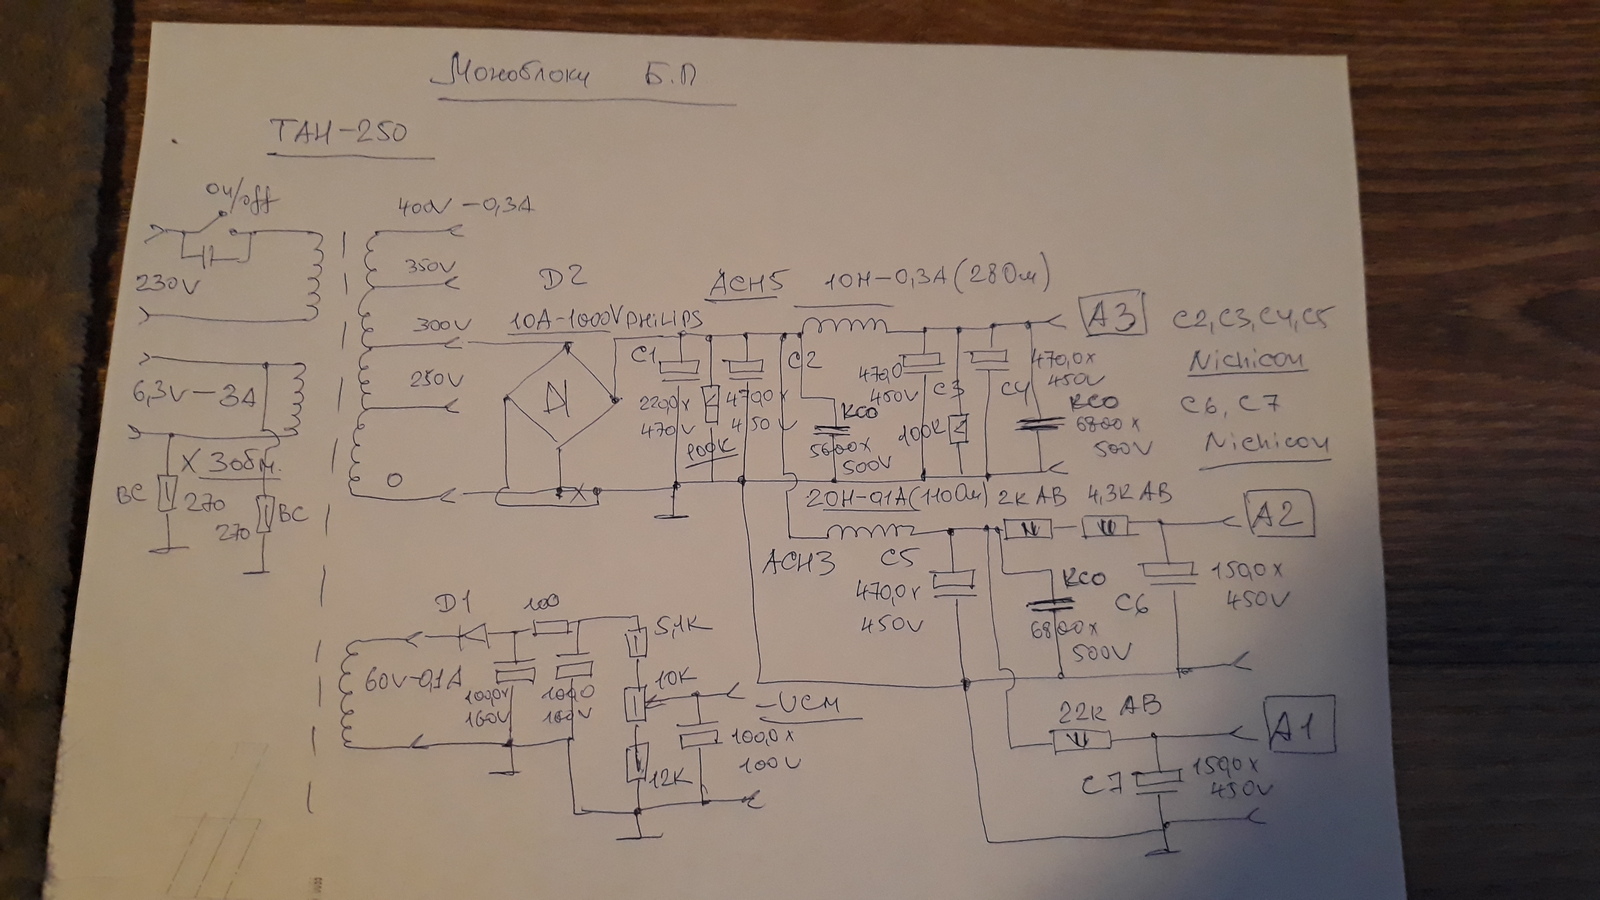 Моноблоки Б.П
ТАН-250
on/off
400V-0,3A
230V
350V
300V
250V
0
6,3V-3A
X 3обм.
ВС
270
270
ВС
D2
10A-1000V PHILIPS
АСН5
10H-0,3A (28Ом)
C1
220,0x
470V
100K
C2
470,0x
450V
КСО
5600x
500V
470,0
450V
C3
100K
C4
470,0x
450V
КСО
6800x
500V
A3
C2, C3, C4, C5
Nichicon
C6, C7
Nichicon
20H-0,1A (110Ом)
2K AB
4,3K AB
A2
АСН3
C5
470,0x
450V
КСО
6800x
500V
C6
150,0x
450V
D1
100
60V-0,1A
100,0x
160V
100,0
160V
5,1K
10K
12K
-Uсм
100,0x
100V
22K AB
A1
C7
150,0x
450V